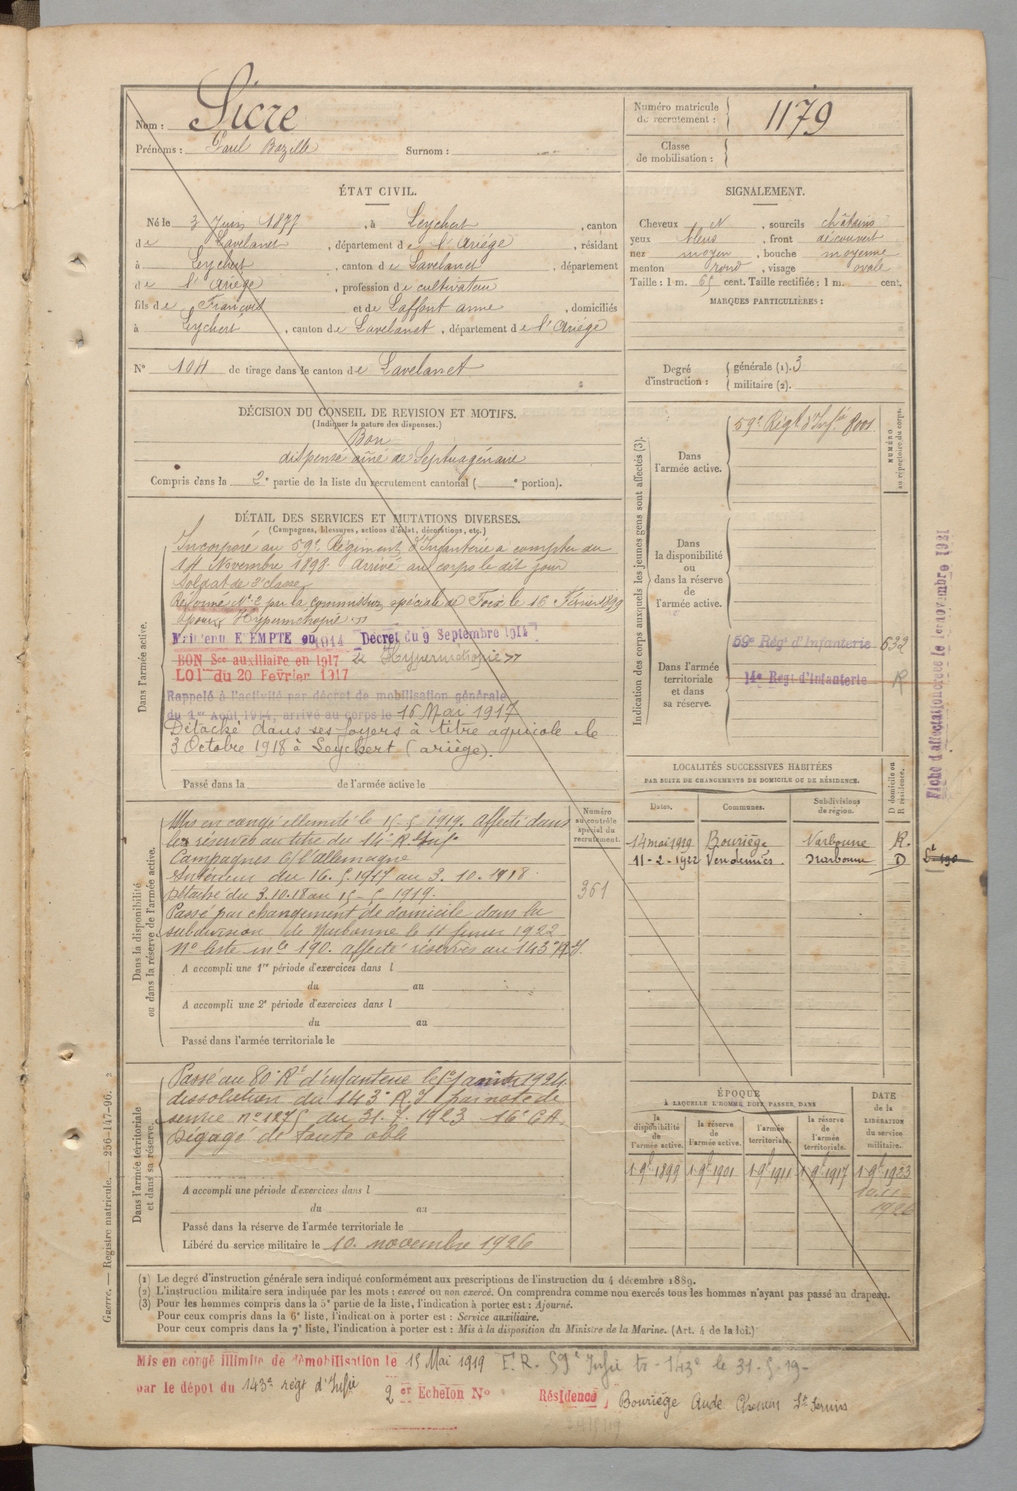 Nom : Sicre
Prénoms : Paul Bazille Surnom :
Numéro matricule
du recrutement : 1179
Classe
de mobilisation :
ÉTAT CIVIL.
Né le 3 Juin 1877, à Leychert, canton
de Lavelanet, département de l'Ariége, résidant
à Leychert, canton de Lavelanet, département
de l'Ariége, profession de cultivateur
fils de François et de Laffont anne, domiciliés
à Leychert, canton de Lavelanet, département de l'Ariége
N° 104 de tirage dans le canton de Lavelanet
SIGNALEMENT.
Cheveux N, sourcils châtains
yeux bleus, front découvert
nez moyen, bouche moyenne
menton rond, visage ovale
Taille : 1 m. 65 cent. Taille rectifiée : 1 m. cent.
MARQUES PARTICULIÈRES :
Degré
d'instruction :
générale (1). 3
militaire (2).
DÉCISION DU CONSEIL DE REVISION ET MOTIFS.
(Indiquer la nature des dispenses.)
Bon
dispensé aîné de Septuagénaire
Compris dans la 2e partie de la liste du recrutement cantonal ( e portion).
DÉTAIL DES SERVICES ET MUTATIONS DIVERSES.
(Campagnes, blessures, actions d'éclat, décorations, etc.)
Dans l'armée active.
Incorporé au 59e Régiment d'Infanterie a compter du
14 Novembre 1898 Arrivé au corps le dit jour
Soldat de 2e classe
Réformé N° 2 par la Commission spéciale de Foix le 16 Février 1899
pour
Maintenu EXEMPTE en 1914 Décret du 9 Septembre 1914
BON Sce auxiliaire en 1917
LOI du 20 Février 1917
Rappelé à l'activité par décret de mobilisation générale
du 1er Août 1914, arrivé au corps le 16 Mai 1917
Détaché dans ses foyers à titre agricole le
3 Octobre 1918 à Leychert (ariège).
Passé dans la de l'armée active le
Indication des corps auxquels les jeunes gens sont affectés (3).
Dans
l'armée active.
59e Régt d'Infie 8001
NUMÉRO
au répertoire du corps.
Dans
la disponibilité
ou
dans la réserve
de
l'armée active.
Dans l'armée
territoriale
et dans
sa réserve.
59e Régt d'Infanterie 632
14e Régt d'Infanterie R
Fiche d'affectation créée le 1er novembre 1921
LOCALITÉS SUCCESSIVES HABITÉES
PAR SUITE DE CHANGEMENTS DE DOMICILE OU DE RÉSIDENCE.
Dates. Communes. Subdivisions
de région. D domicile ou
R résidence.
14 mai 1919 Bouriège Narbonne R.
11-2-1922 Vendemies Narbonne D
Dans la disponibilité
ou dans la réserve de l'armée active.
Numéro
au contrôle
spécial du
recrutement.
361
Mis en congé illimité le 15-5-1919. Affecté dans
les réserves au titre du 14e R. d'Inf.
Campagnes c/ l'Allemagne
Intérieur du 16.5.1917 au 3.10.1918
Détaché du 3.10.18 au 15-5-1919.
Passé par changement de domicile dans la
subdivision de Narbonne le 11 février 1922
n° liste mle 190. affecté réserves au 143e R.I.
A accompli une 1re période d'exercices dans l
du au
A accompli une 2e période d'exercices dans l
du au
Passé dans l'armée territoriale le
Dans l'armée territoriale
et dans sa réserve.
Passé au 80e Rt d'infanterie le 1er janvier 1924
dissolution du 143e R.I par note de
service n° 1275 du 31.7.1923 16e C.A.
Dégagé de toute obli
A accompli une période d'exercices dans l
du au
Passé dans la réserve de l'armée territoriale le
Libéré du service militaire le 10 novembre 1926
ÉPOQUE
À LAQUELLE L'HOMME DOIT PASSER DANS
la
disponibilité
de
l'armée active.
la réserve
de
l'armée active.
l'armée
territoriale.
la réserve
de
l'armée
territoriale.
DATE
de la
LIBÉRATION
du service
militaire.
1-9e 1899 1-9e 1901 1-9e 1911 1-9e 1917 1-9e 1923
10.11
1926
(1) Le degré d'instruction générale sera indiqué conformément aux prescriptions de l'instruction du 4 décembre 1889.
(2) L'instruction militaire sera indiquée par les mots : exercé ou non exercé. On comprendra comme non exercés tous les hommes n'ayant pas passé au drapeau.
(3) Pour les hommes compris dans la 5e partie de la liste, l'indication à porter est : Ajourné.
Pour ceux compris dans la 6e liste, l'indication à porter est : Service auxiliaire.
Pour ceux compris dans la 7e liste, l'indication à porter est : Mis à la disposition du Ministre de la Marine. (Art. 4 de la loi.)
Guerre. — Registre matricule. — 256-147-96.
Mis en congé illimité de démobilisation le 15 Mai 1919 E.R. 59e Infie tr - 143e le 31-5-19-
par le dépot du 143e régt d'Infie 2er Echelon N° Résidence Bouriège Aude